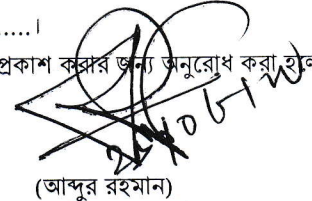 ......।
প্রকাশ করার জন্য অনুরোধ করা হলো
(আব্দুর রহমান)